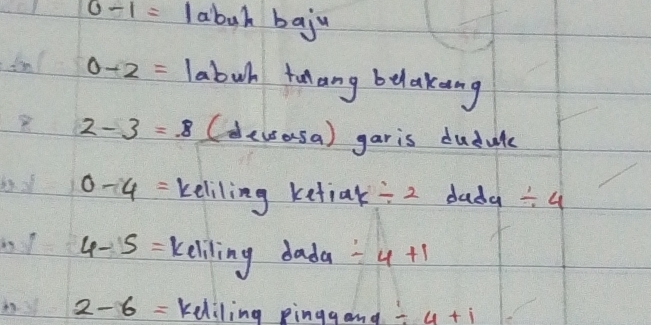 0-1 = labuh baju
0-2 = labuh tulang belakang
2-3 = 8 (dewasa) garis duduk
0-4 = keliling ketiak ÷ 2 dada ÷ 4
4-5 = keliling dada ÷ 4 + 1
2-6 = keliling pinggang ÷ 4 + 1